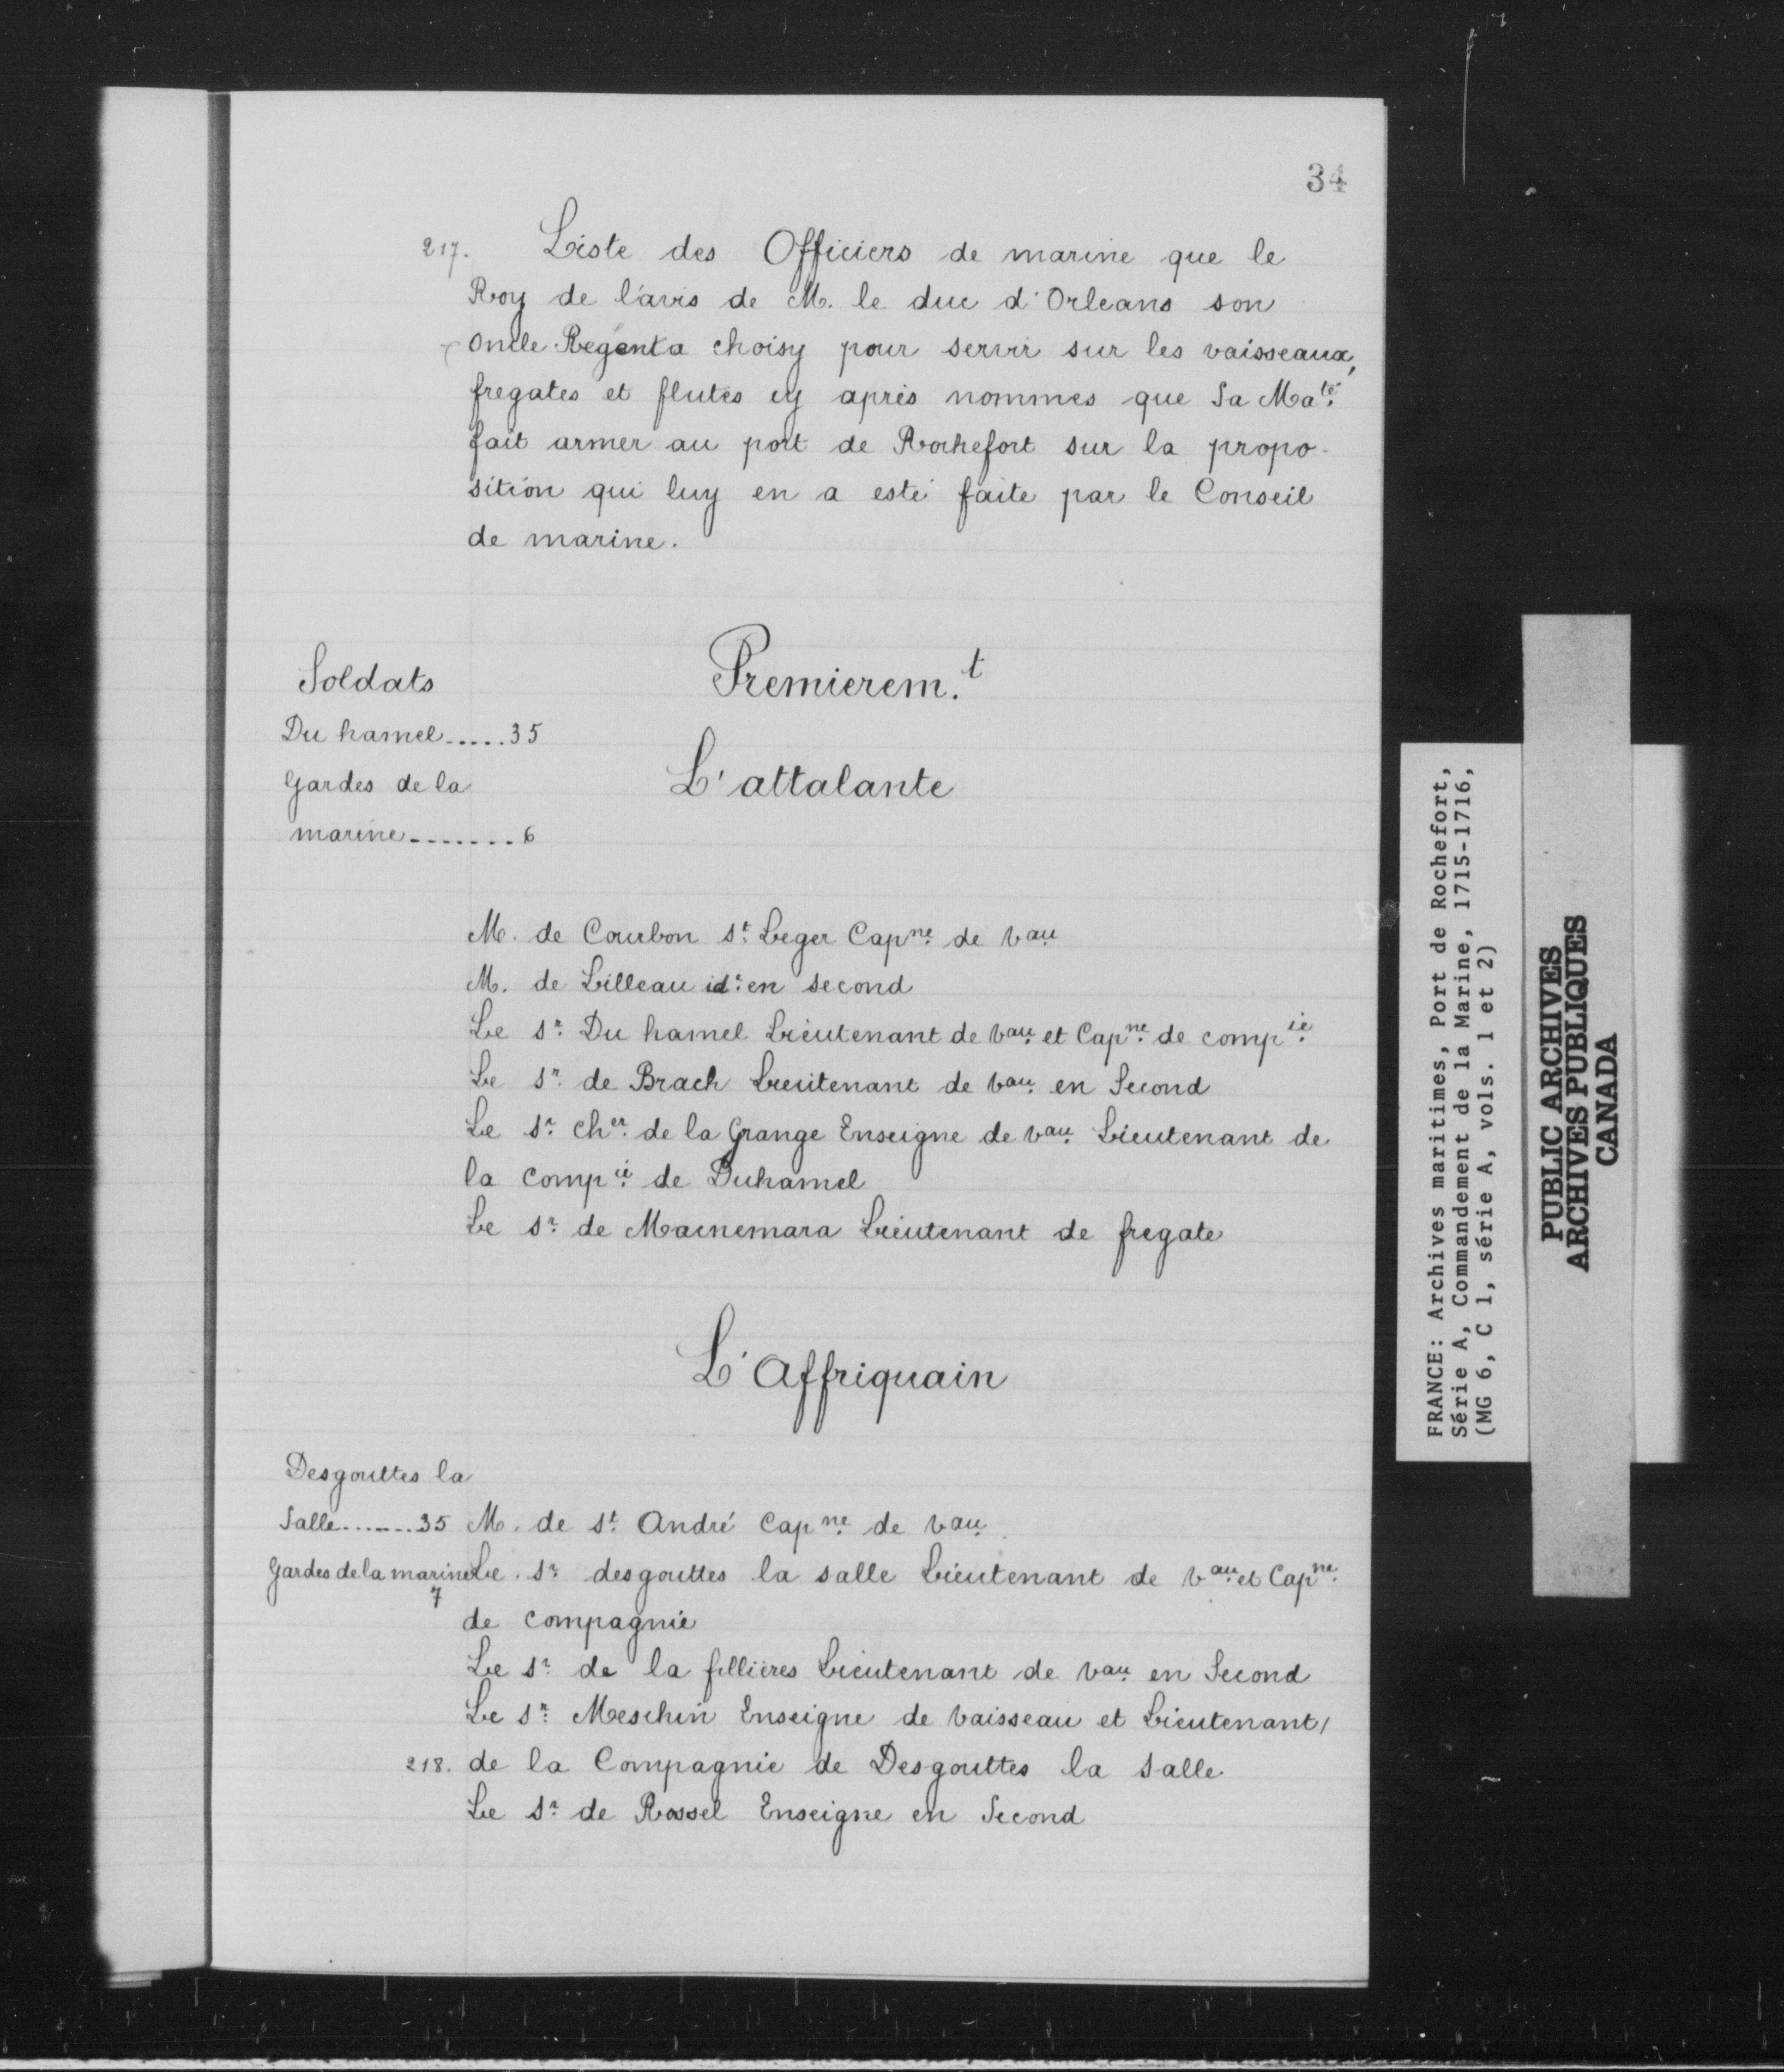 34
217. Liste des Officiers de marine que le
Roy de l'avis de M. le duc d'Orleans son
oncle Regent a choisy pour servir sur les vaisseaux,
fregates et flutes cy après nommes que Sa Maté.
fait armer au port de Rochefort sur la propo-
sition qui luy en a esté faite par le Conseil
de marine.
Soldats
Premierem.t
Du hamel.....35
Gardes de la
L'attalante
marine.......6
M. de Courbon St. Leger Capne. de Vau
M. de Lilleau id. en second
Le Sr. Du hamel Lieutenant de Vau. et Capne. de compie.
Le Sr. de Brach Lieutenant de Vau. en Second
Le Sr. Cher. de la Grange Enseigne de Vau. Lieutenant de
la Compie. de Duhamel
Le Sr. de Macnemara Lieutenant de fregate
L'Affriquain
Desgouttes la
Salle.......35 M. de St. André Capne. de Vau.
Gardes de la marine Le Sr. desgouttes la salle Lieutenant de Vau. et Capne.
7
de compagnie
Le Sr. de la fillières Lieutenant de Vau. en Second
Le Sr. Meschin Enseigne de Vaisseau et Lieutenant/
218. de la Compagnie de Desgouttes la Salle
Le Sr. de Rossel Enseigne en Second
FRANCE: Archives maritimes, Port de Rochefort,
Série A, Commandement de la Marine, 1715-1716,
(MG 6, C 1, série A, vols. 1 et 2)
PUBLIC ARCHIVES
ARCHIVES PUBLIQUES
CANADA